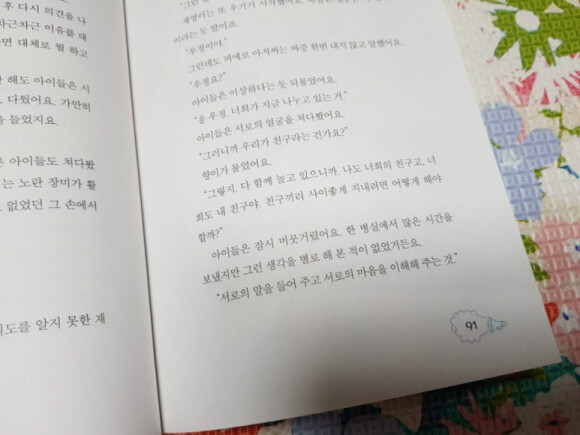 후 다시 의견을 나
차근차근 이유를 대
면 대체로 뭘 하고
한 해도 아이들은 시
다퉜어요. 가만히
을 들었지요.
은 아이들도 쳐다봤
는 노란 장미가 활
없었던 그 손에서
도를 알지 못한 재
이라는 듯 말이죠.
"우정이야."
그런데도 피에로 아저씨는 짜증 한번 내지 않고 말했어요.
"우정요?"
아이들은 이상하다는 듯 되물었어요.
"응 우정. 너희가 지금 나누고 있는 거."
아이들은 서로의 얼굴을 쳐다봤어요.
"그러니까 우리가 친구라는 건가요?"
향이가 물었어요.
"그렇지. 다 함께 놀고 있으니까. 나도 너희의 친구고, 너
희도 내 친구야. 친구끼리 사이좋게 지내려면 어떻게 해야
할까?"
아이들은 잠시 머뭇거렸어요. 한 병실에서 많은 시간을
보냈지만 그런 생각을 별로 해 본 적이 없었거든요.
"서로의 말을 들어 주고 서로의 마음을 이해해 주는 것."
91